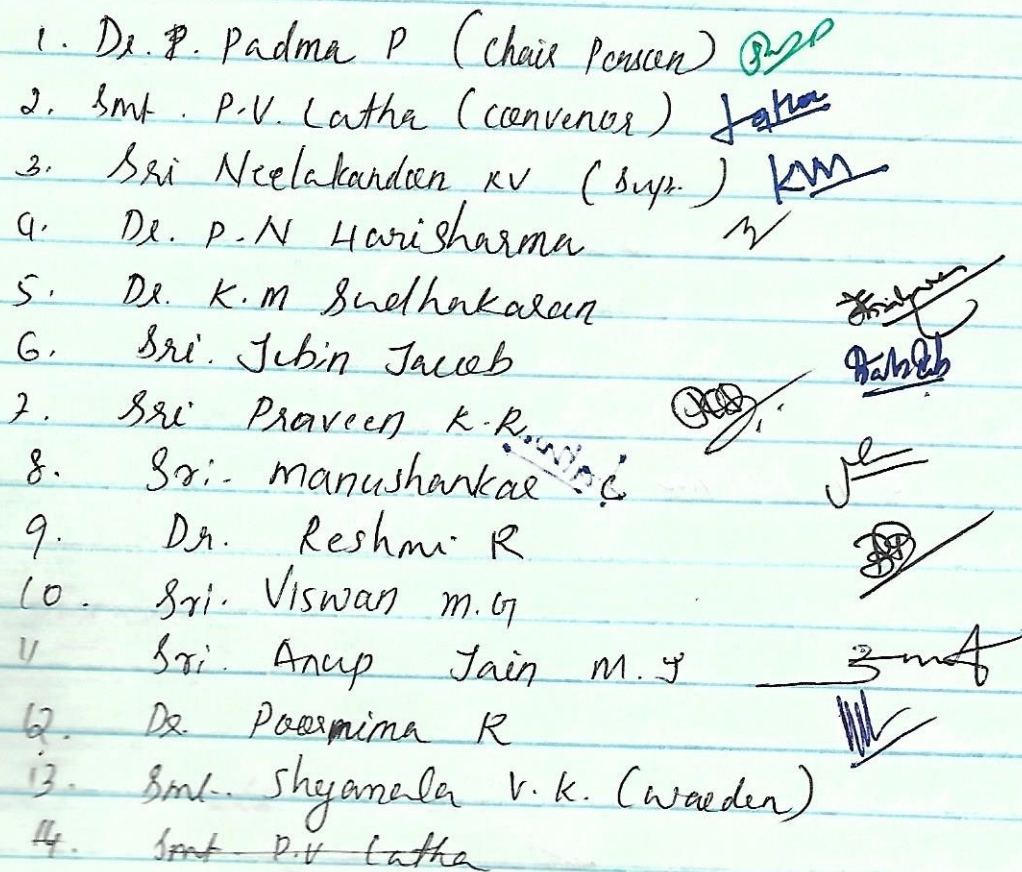 1. Dr. P. Padma P (Chair Person)
2. Smt. P.V. Latha (convenor) Latha
3. Sri Neelakandan KV (Supt.) KVN
4. Dr. P.N Harisharma
5. Dr. K.M Sudhakaran
6. Sri. Jebin Jacob
7. Sri Praveen K.R.
8. Sri. Manushankar C
9. Dr. Reshmi R
10. Sri. Viswan M.G
11 Sri. Anup Jain M.J
12. Dr. Poornima R
13. Smt. Shyamala V.K. (Warden)
14. Smt P.V Latha